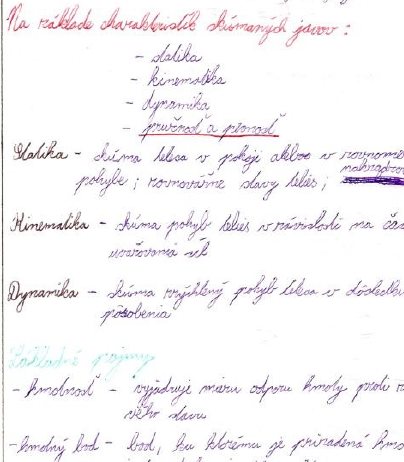 Na základe charakteristík skúmaných javov :
- statika
- kinematika
- dynamika
- pružnosť a pevnosť
Statika - skúma telesa v pokoji alebo v rovnome
pohybe ; rovnovážne stavy telies ; nahradzo
Kinematika - skúma pohyb telies v závislosti na čas
uvažovania síl
Dynamika - skúma zrýchlený pohyb telesa v dôsledku
pôsobenia
Základné pojmy
- hmotnosť - vyjadruje mieru odporu hmoty proti
vého stavu
- hmotný bod - bod, ku ktorému je priradená hmo